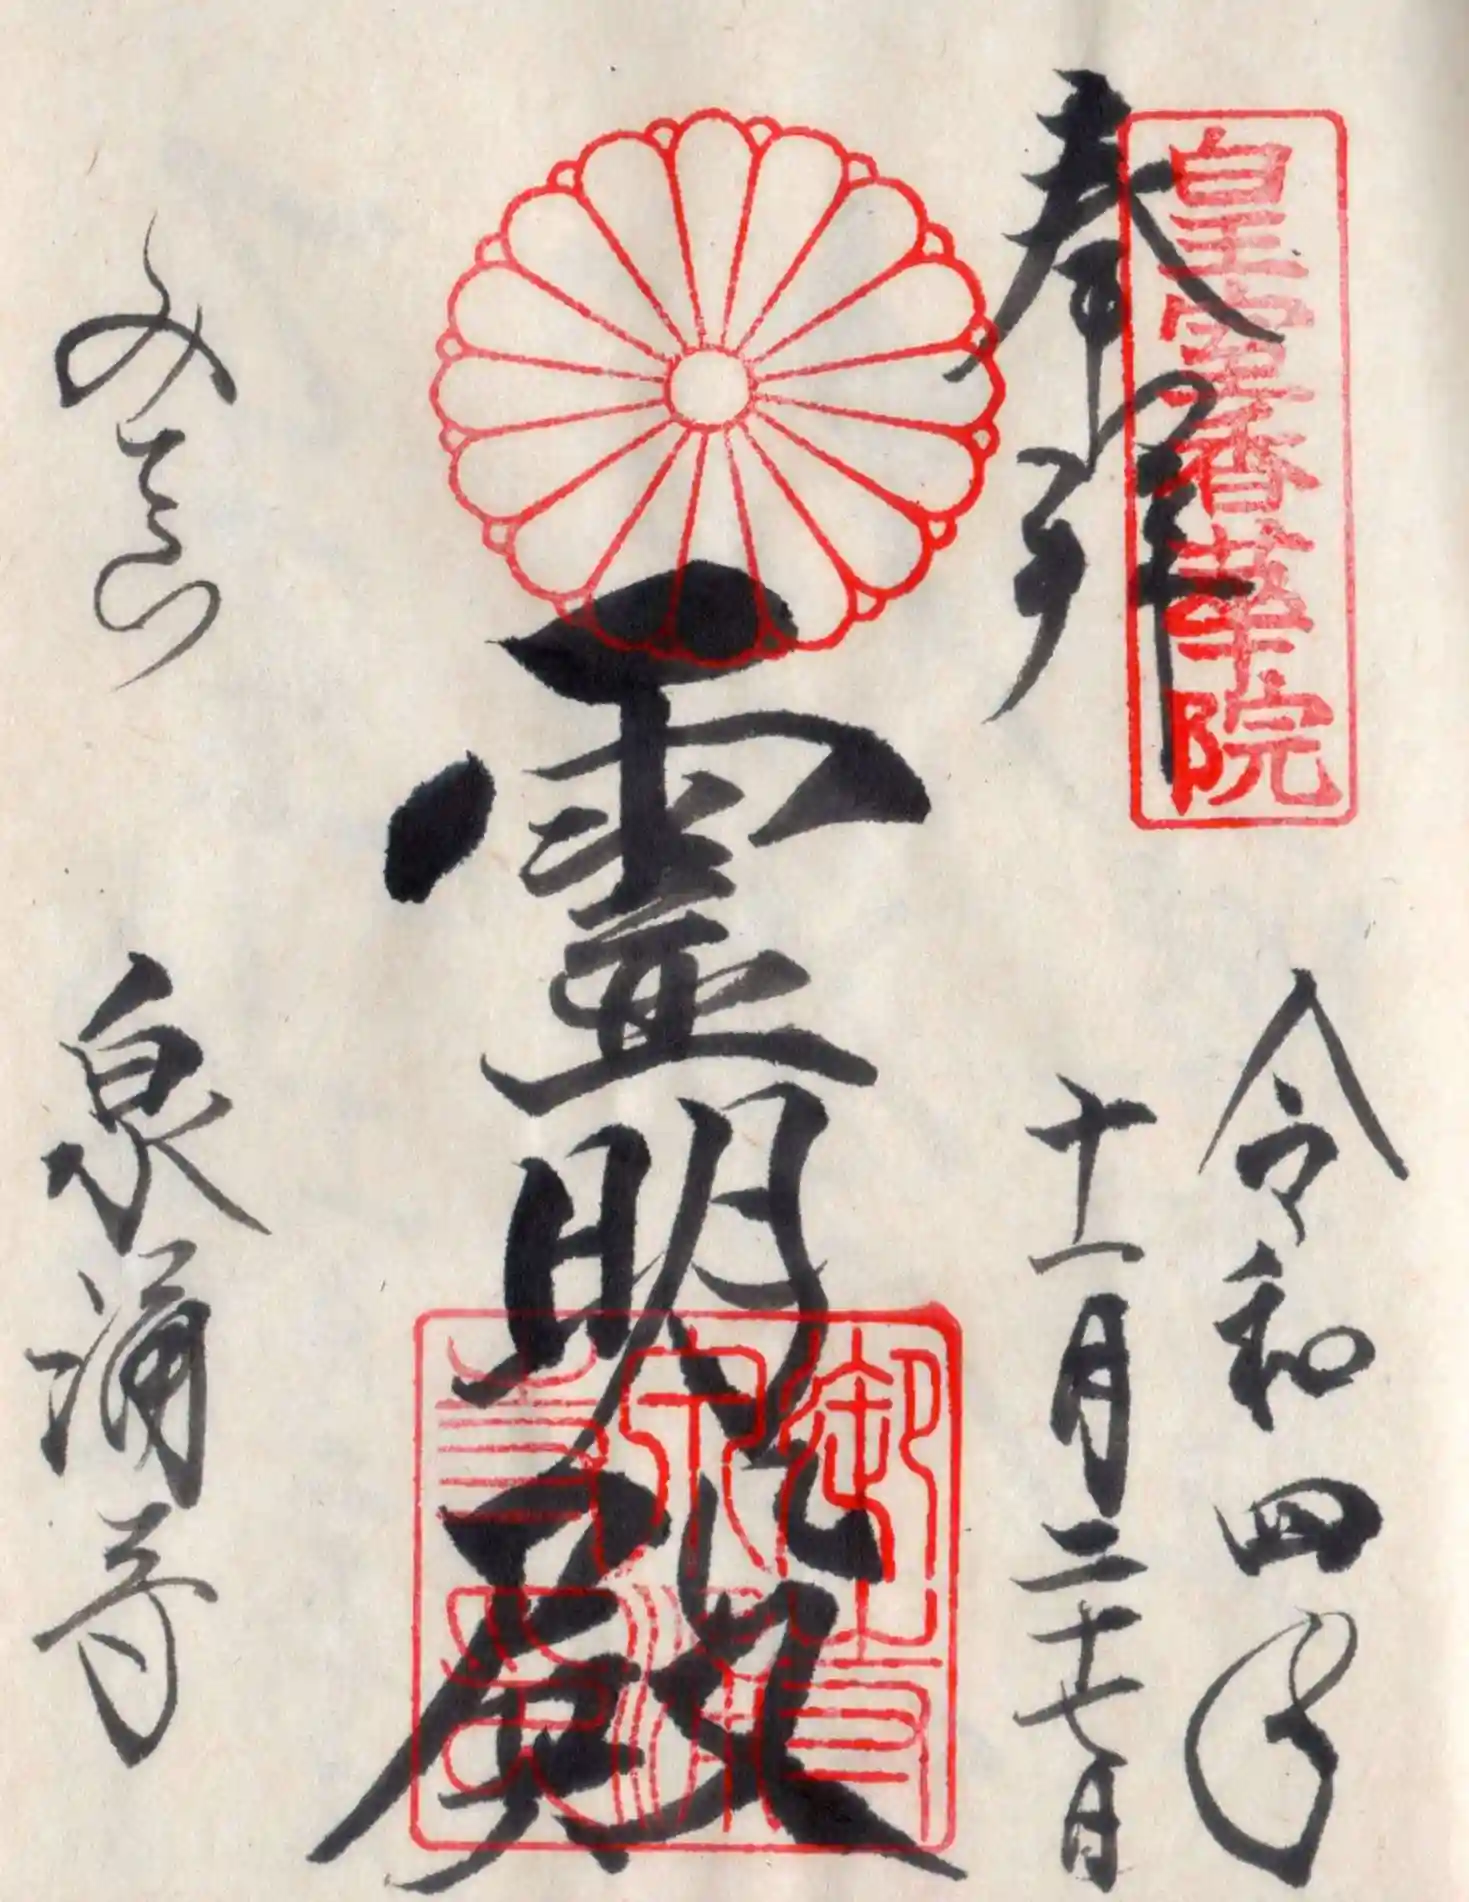 皇室香華院
奉拝
令和四年
十一月二十七日
霊明殿
みてら
泉涌寺